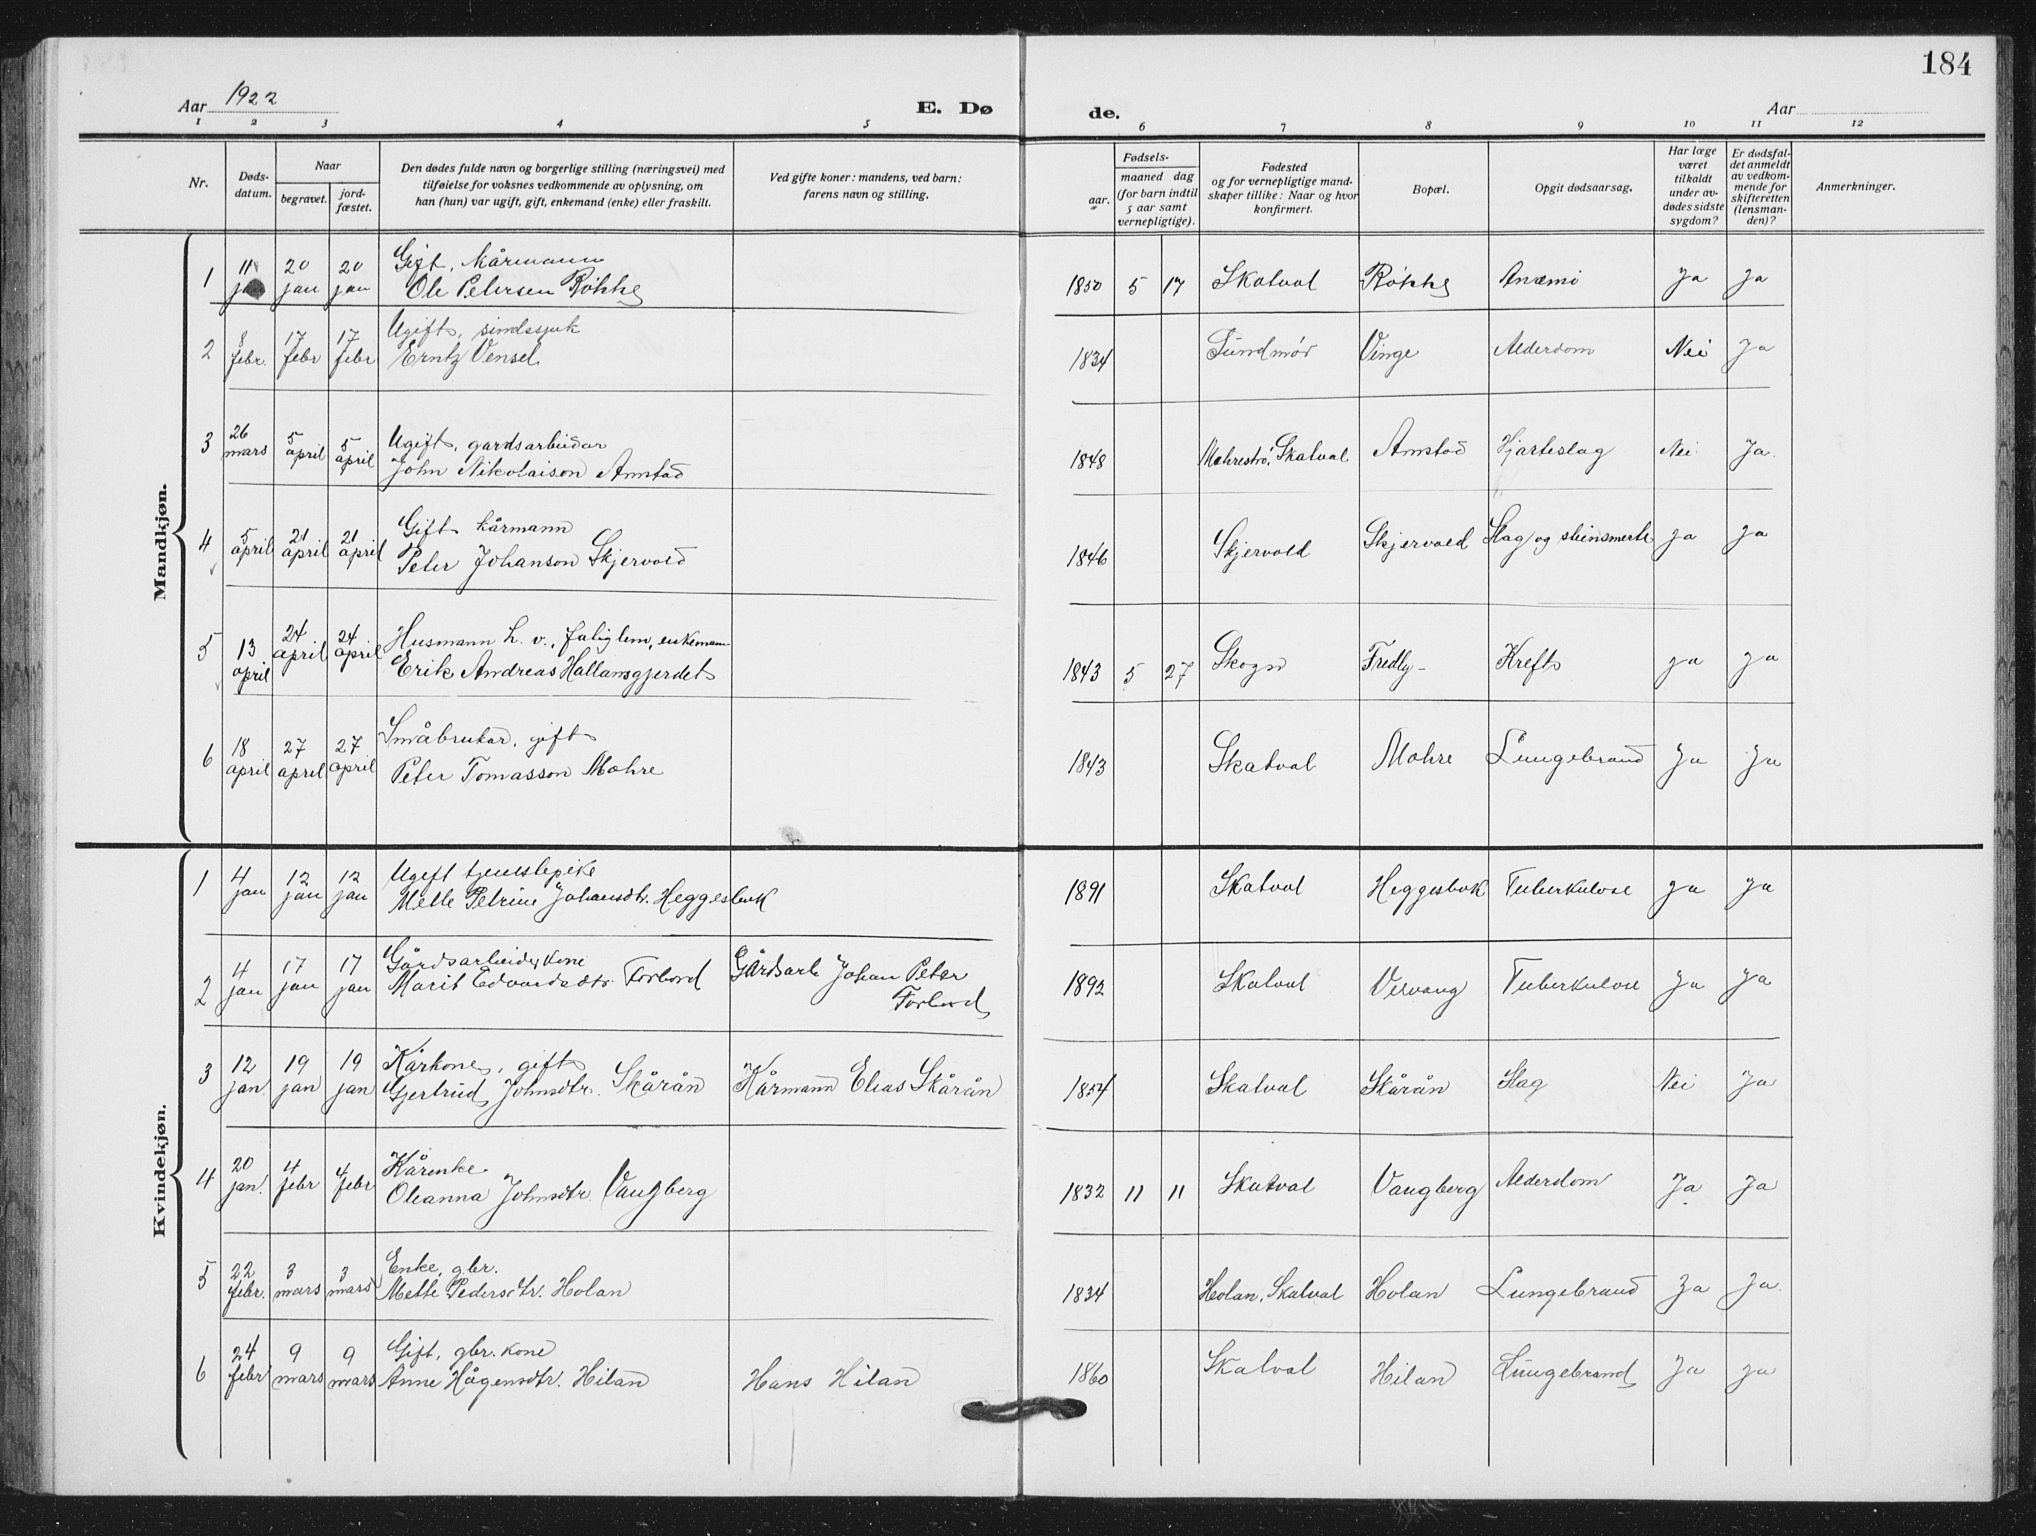 184
Aar 1922
E. Dø
de.
Aar
1 2 3 4 5 6 7 8 9 10 11 12
Nr.
Døds-
datum.
Naar
begravet.
jord-
fæstet.
Den dødes fulde navn og borgerlige stilling (næringsvei) med
tilføielse for voksnes vedkommende av oplysning, om
han (hun) var ugift, gift, enkemand (enke) eller fraskilt.
Ved gifte koner: mandens, ved barn:
farens navn og stilling.
aar.
Fødsels-
maaned dag
(for barn indtil
5 aar samt
vernepligtige).
Fødested
og for vernepligtige mand-
skaper tillike: Naar og hvor
konfirmert.
Bopæl.
Opgit dødsaarsag.
Har læge
været
tilkaldt
under av-
dødes sidste
sygdom?
Er dødsfal-
det anmeldt
av vedkom-
mende for
skifteretten
(lensman-
den)?
Anmerkninger.
Mandkjøn.
1 11 jan 20 jan 20 jan Gift, kårmann
Ole Petersen Røkke 1850 5 17 Skatval Røkke Anæmi Ja Ja
2 8 febr. 17 febr 17 febr Ugift, sindssjuk
Erntz Vensel 1834 Sundmør Vinge Alderdom Nei Ja
3 26 mars 5 april 5 april Ugift, gardsarbeidar
John Nikolaison Arnstad 1848 Mæhrestrø, Skatval Arnstad Hjarteslag Nei Ja.
4 5 april 21 april 21 april Gift kårmann
Peter Johanson Skjervold 1846 Skjervold Skjervold Slag og steinsmerte Ja Ja
5 13 april 24 april 24 april Husmann h. v., falig lem, enkemann
Erik Andreas Hallansgjerdet 1843 5 27 Skogn Fredly Kreft Ja Ja
6 18 april 27 april 27 april Småbrukar, gift
Peter Tomasson Mæhre 1843 Skatval Mæhre Lungebrand Ja Ja
Kvindekjøn.
1 4 jan 12 jan 12 jan Ugift tjenestepike
Mette Petrine Johansdtr. Heggesbuk 1891 Skatval Heggesbuk Tuberkulose Ja Ja
2 4 jan 17 jan 17 jan Gårdsarbeiderkone
Marit Edvardsdtr. Forbord Gårdsarb Johan Peter
Forbord 1892 Skatval Vervang Tuberkulose Ja Ja
3 12 jan 19 jan 19 jan Kårkone, gift
Gjertrud Johnsdtr. Skårån Kårmann Elias Skårån 1854 Skatval Skårån Slag Nei Ja
4 20 jan. 4 febr 4 febr Kårenke.
Oleanna Johnsdtr. Vangberg 1832 11 11 Skatval Vangberg Alderdom Ja Ja
5 22 febr. 3 mars 3 mars Enke, gbr.
Mette Pedersdtr. Holan 1834 Holan, Skatval Holan Lungebrand Ja Ja.
6 24 febr 9 mars 9 mars Gift, gbr. kone
Anne Hågensdtr. Hilan Hans Hilan 1860 Skatval Hilan Lungebrand Ja Ja